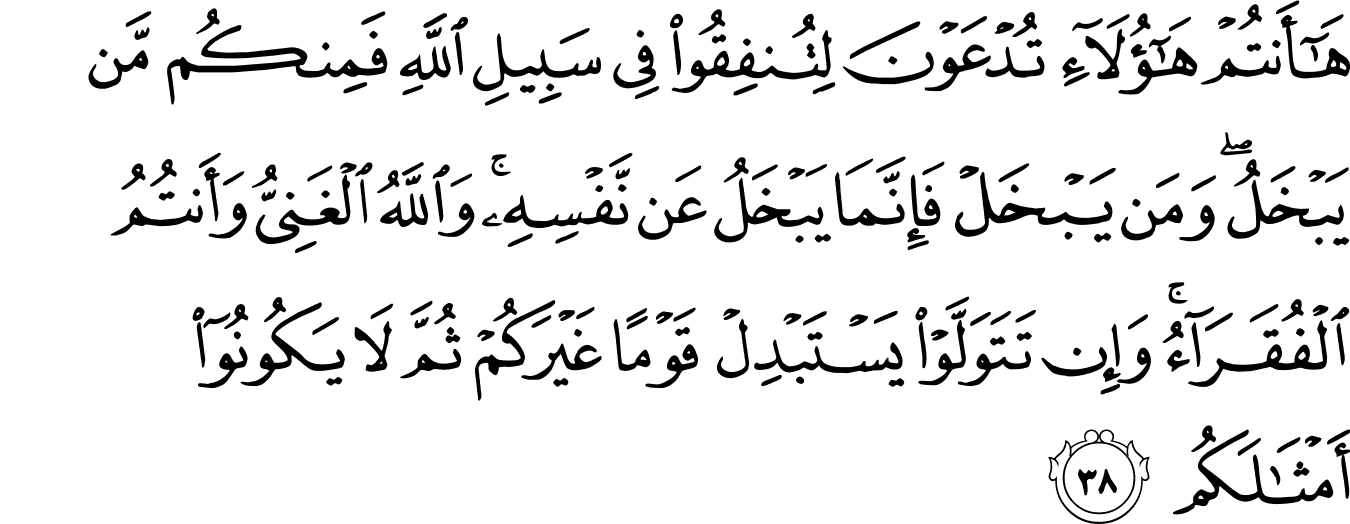 هَـٰٓأَنتُمۡ هَـٰٓؤُلَآءِ تُدۡعَوۡنَ لِتُنفِقُواْ فِي سَبِيلِ ٱللَّهِ فَمِنكُم مَّن
يَبۡخَلُۖ وَمَن يَبۡخَلۡ فَإِنَّمَا يَبۡخَلُ عَن نَّفۡسِهِۦۚ وَٱللَّهُ ٱلۡغَنِيُّ وَأَنتُمُ
ٱلۡفُقَرَآءُۚ وَإِن تَتَوَلَّوۡاْ يَسۡتَبۡدِلۡ قَوۡمًا غَيۡرَكُمۡ ثُمَّ لَا يَكُونُوٓاْ
أَمۡثَـٰلَكُم ٣٨